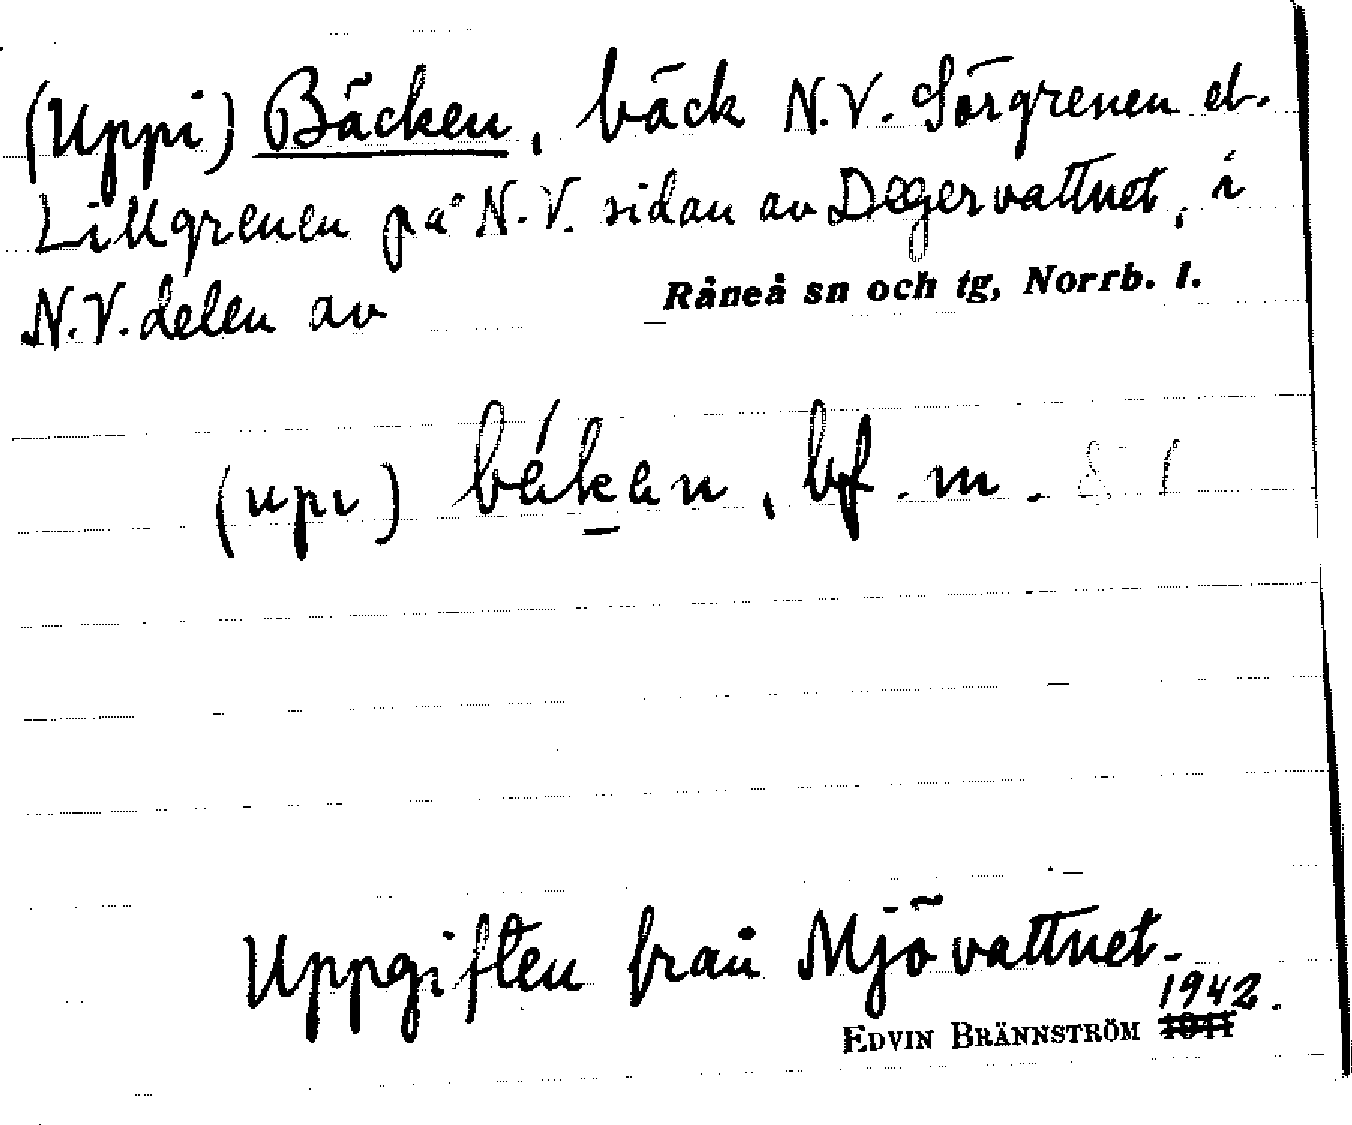 (Uppi) Bäcken, bäck N.V. Sörgrenen el.
Lillgrenen på N.V. sidan av Degervattnet, i
N.V. delen av Råneå sn och tg, Norrb. l.
(upι) bákan, bf. m.
Uppgiften från Mjövattnet.
1942.
EDVIN BRÄNNSTRÖM 1941